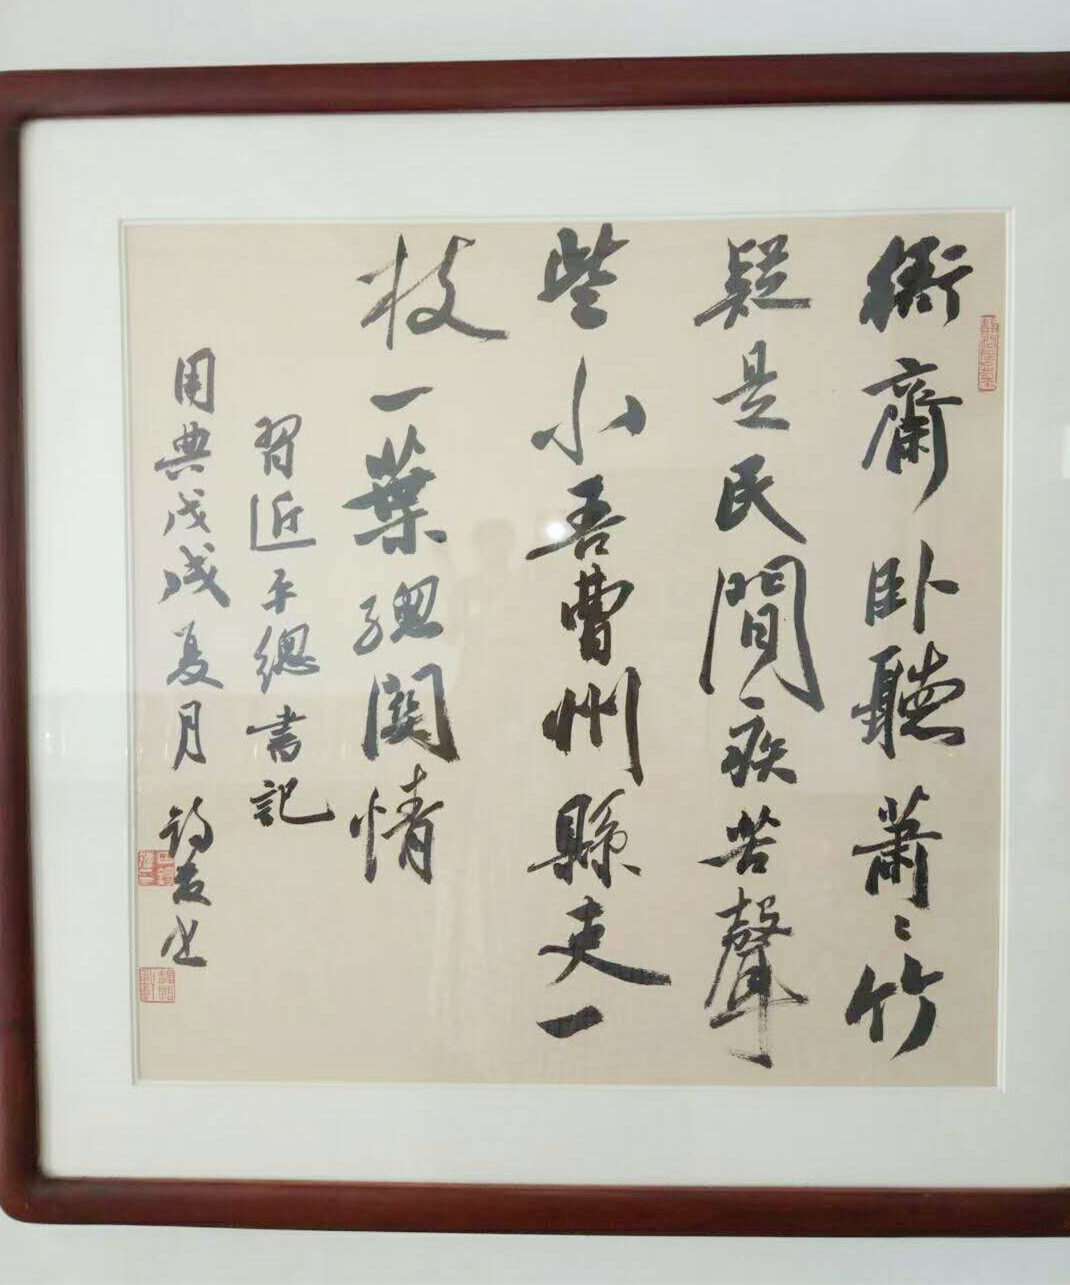 衙齋卧聽蕭〻竹
疑是民間疾苦聲
些小吾曹州縣吏一
枝一葉總關情
習近平總書記
用典戊戌夏月